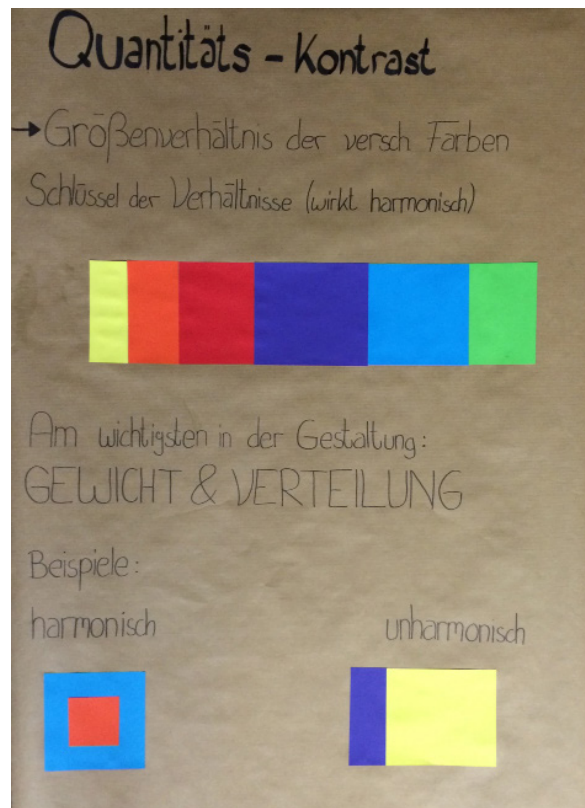 Quantitäts - Kontrast
→ Größenverhältnis der versch Farben
Schlüssel der Verhältnisse (wirkt harmonisch)
Am wichtigsten in der Gestaltung:
GEWICHT & VERTEILUNG
Beispiele:
harmonisch unharmonisch